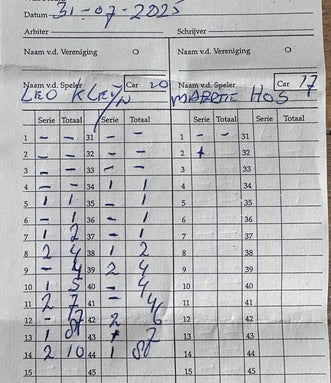 Datum 31-07-2025
Arbiter Schrijver
Naam v.d. Vereniging O Naam v.d. Vereniging O
Naam v.d. Speler Car 20 Naam v.d. Speler Car 17
LEO KLEYN MAARTJE HOS
Serie Totaal Serie Totaal Serie Totaal Serie Totaal
1 - - 31 - - 1 - - 31
2 - - 32 - - 2 32
3 - - 33 - - 3 33
4 - - 34 1 1 4 34
5 1 1 35 - 1 5 35
6 - 1 36 - 1 6 36
7 1 2 37 - 1 7 37
8 2 4 38 1 2 8 38
9 - 4 39 2 4 9 39
10 1 5 40 - 4 10 40
11 2 7 41 - 4 11 41
12 - 7 42 2 6 12 42
13 1 8 43 7 13 43
14 2 10 44 1 8 14 44
15 45 15 45